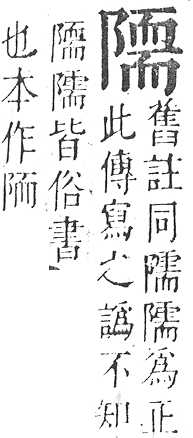 舊註同隭隭為正
此傳寫之譌不知
隭皆俗書
也本作陑